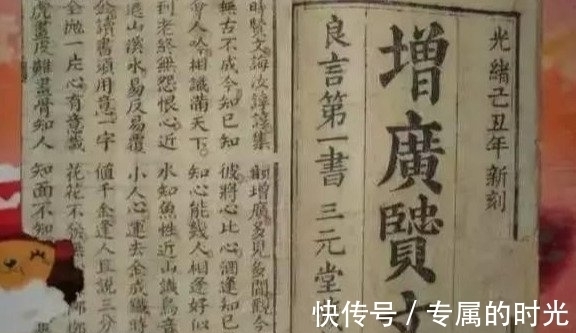 光緒己丑年新刻
增廣贒
良言第一書 三元堂
時賢文誨汝諄諄集韵增廣多見多聞觀今
無古不成今知己知彼將心比心酒逢知己
會人吟相識滿天下知心能幾人相逢好似
到老終無怨恨心近水知魚性近山識鳥音
退山溪水易反易覆小人心運去金成鐵時
金讀書須用意一字值千金逢人且說三分
全拋一片心有意栽花花不發
虎畫皮難畫骨知人知面不知
快传号 / 专属的时光